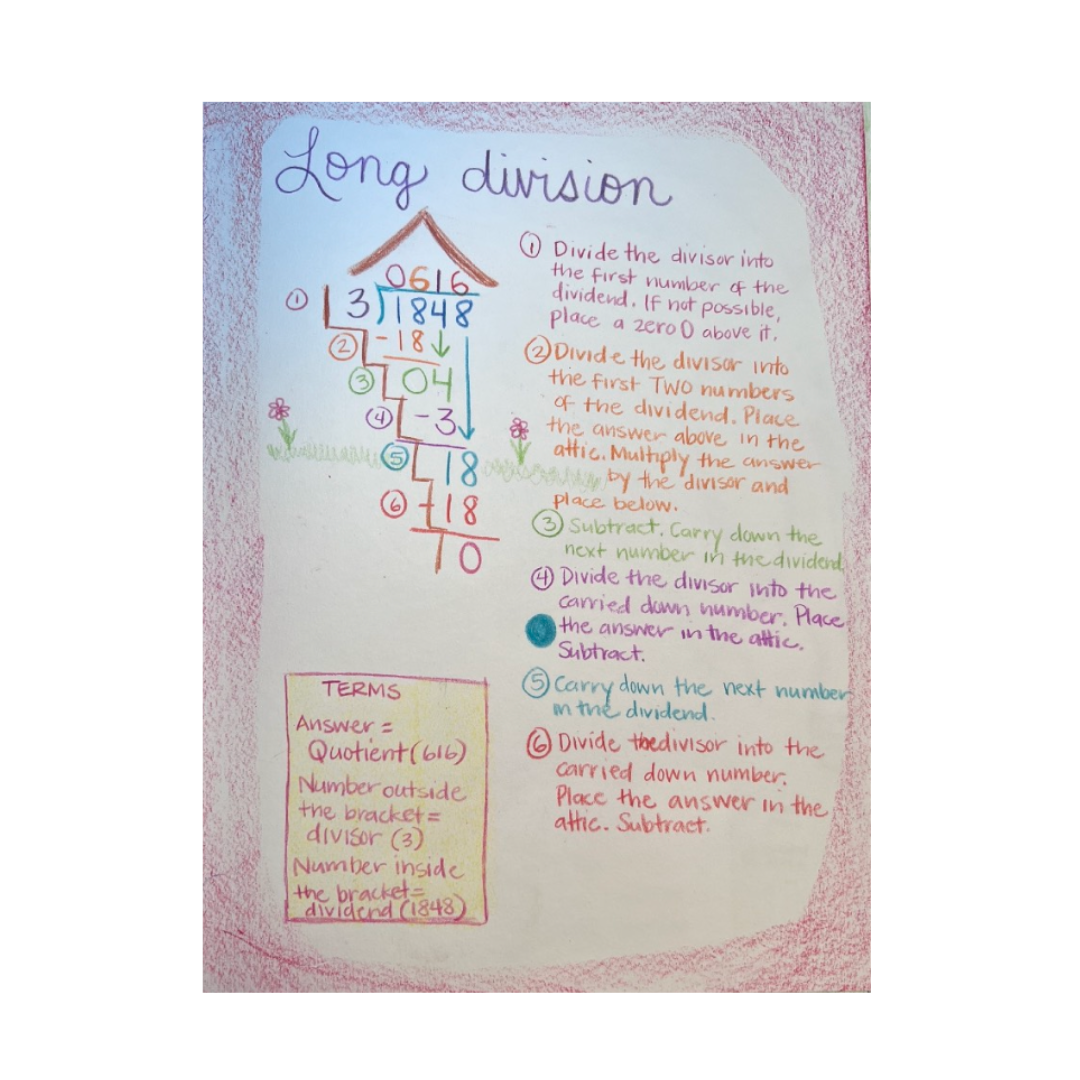 Long division
0616
① 3)1848
② -18
③ 04
④ -3
⑤ 18
⑥ -18
0
① Divide the divisor into
the first number of the
dividend. If not possible,
place a zero 0 above it.
② Divide the divisor into
the first TWO numbers
of the dividend. Place
the answer above in the
attic. Multiply the answer
by the divisor and
place below.
③ Subtract. Carry down the
next number in the dividend.
④ Divide the divisor into the
carried down number. Place
the answer in the attic.
Subtract.
⑤ Carry down the next number
in the dividend.
⑥ Divide the divisor into the
carried down number.
Place the answer in the
attic. Subtract.
TERMS
Answer =
Quotient (616)
Number outside
the bracket =
divisor (3)
Number inside
the bracket =
dividend (1848)